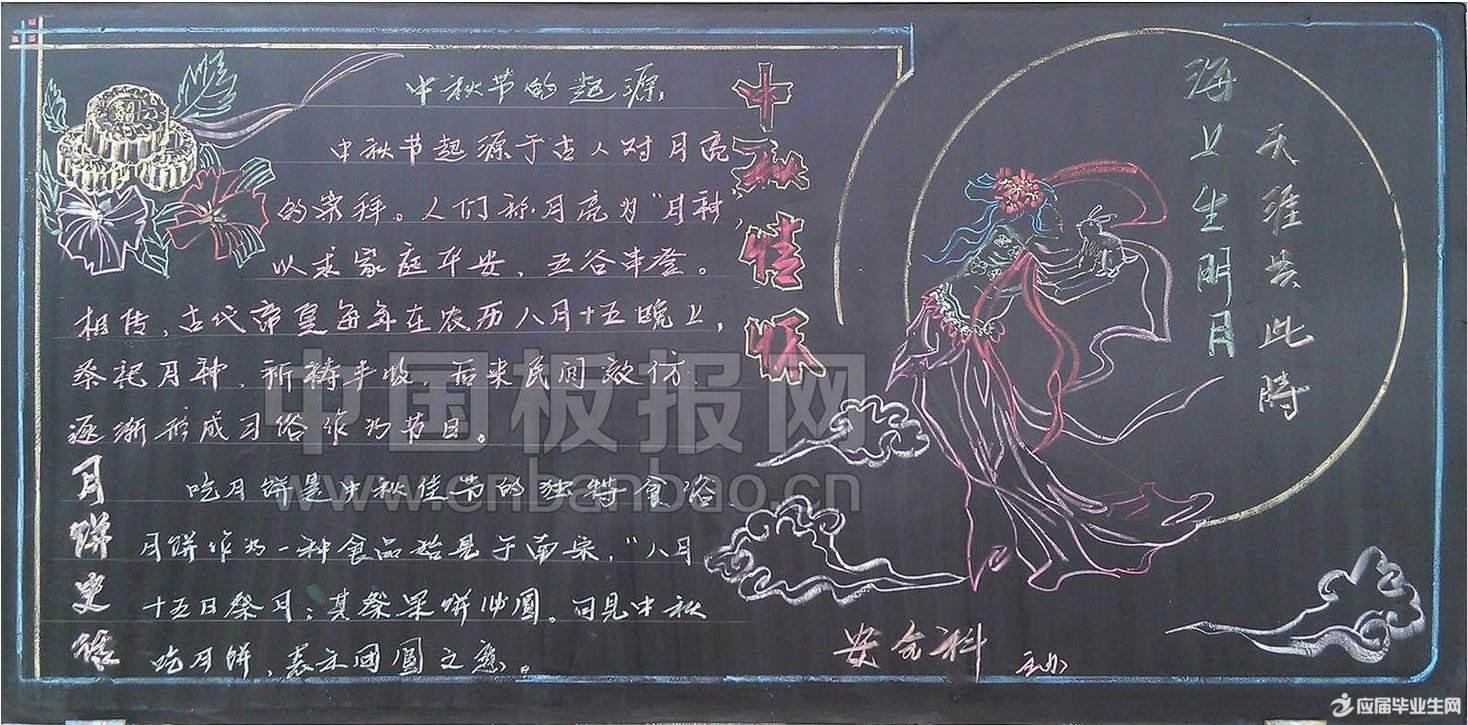 中秋节的起源
中秋节起源于古人对月亮
的崇拜。人们称月亮为“月神”，
以求家庭平安，五谷丰登。
相传，古代帝皇每年在农历八月十五晚上，
祭祀月神，祈祷丰收，后来民间效仿，
逐渐形成习俗作为节日。
吃月饼是中秋佳节的独特食俗
月饼作为一种食品始见于南宋，“八月
十五日祭月；其祭果饼必圆。可见中秋
吃月饼，表示团圆之意。
月饼史话
中秋佳
海上生明月
天涯共此時
安全科 主办
中国板报网
www.cnbanbao.cn
应届毕业生网